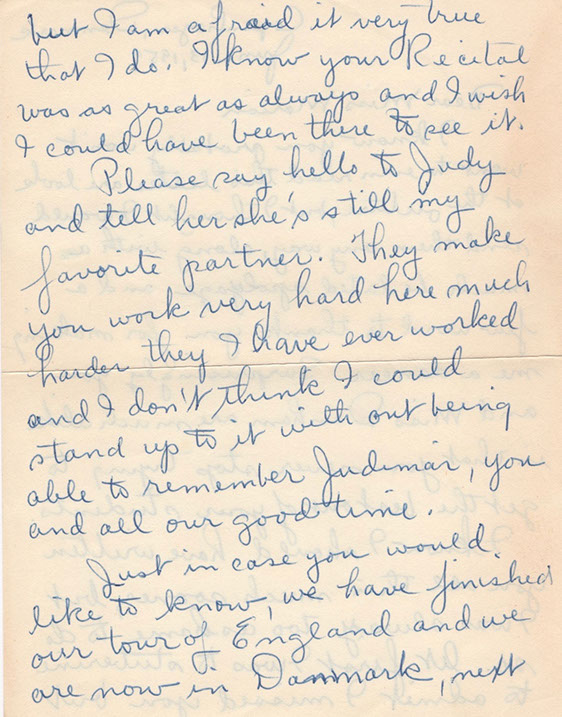 but I am afraid it very true
that I do. I know your Recital
was as great as always and I wish
I could have been there to see it.
Please say hello to Judy
and tell her she's still my
favorite partner. They make
you work very hard here much
harder they I have ever worked
and I don't think I could
stand up to it with out being
able to remember Judimar, you
and all our good time.
Just in case you would
like to know, we have finished
our tour of England and we
are now in Danmark, next